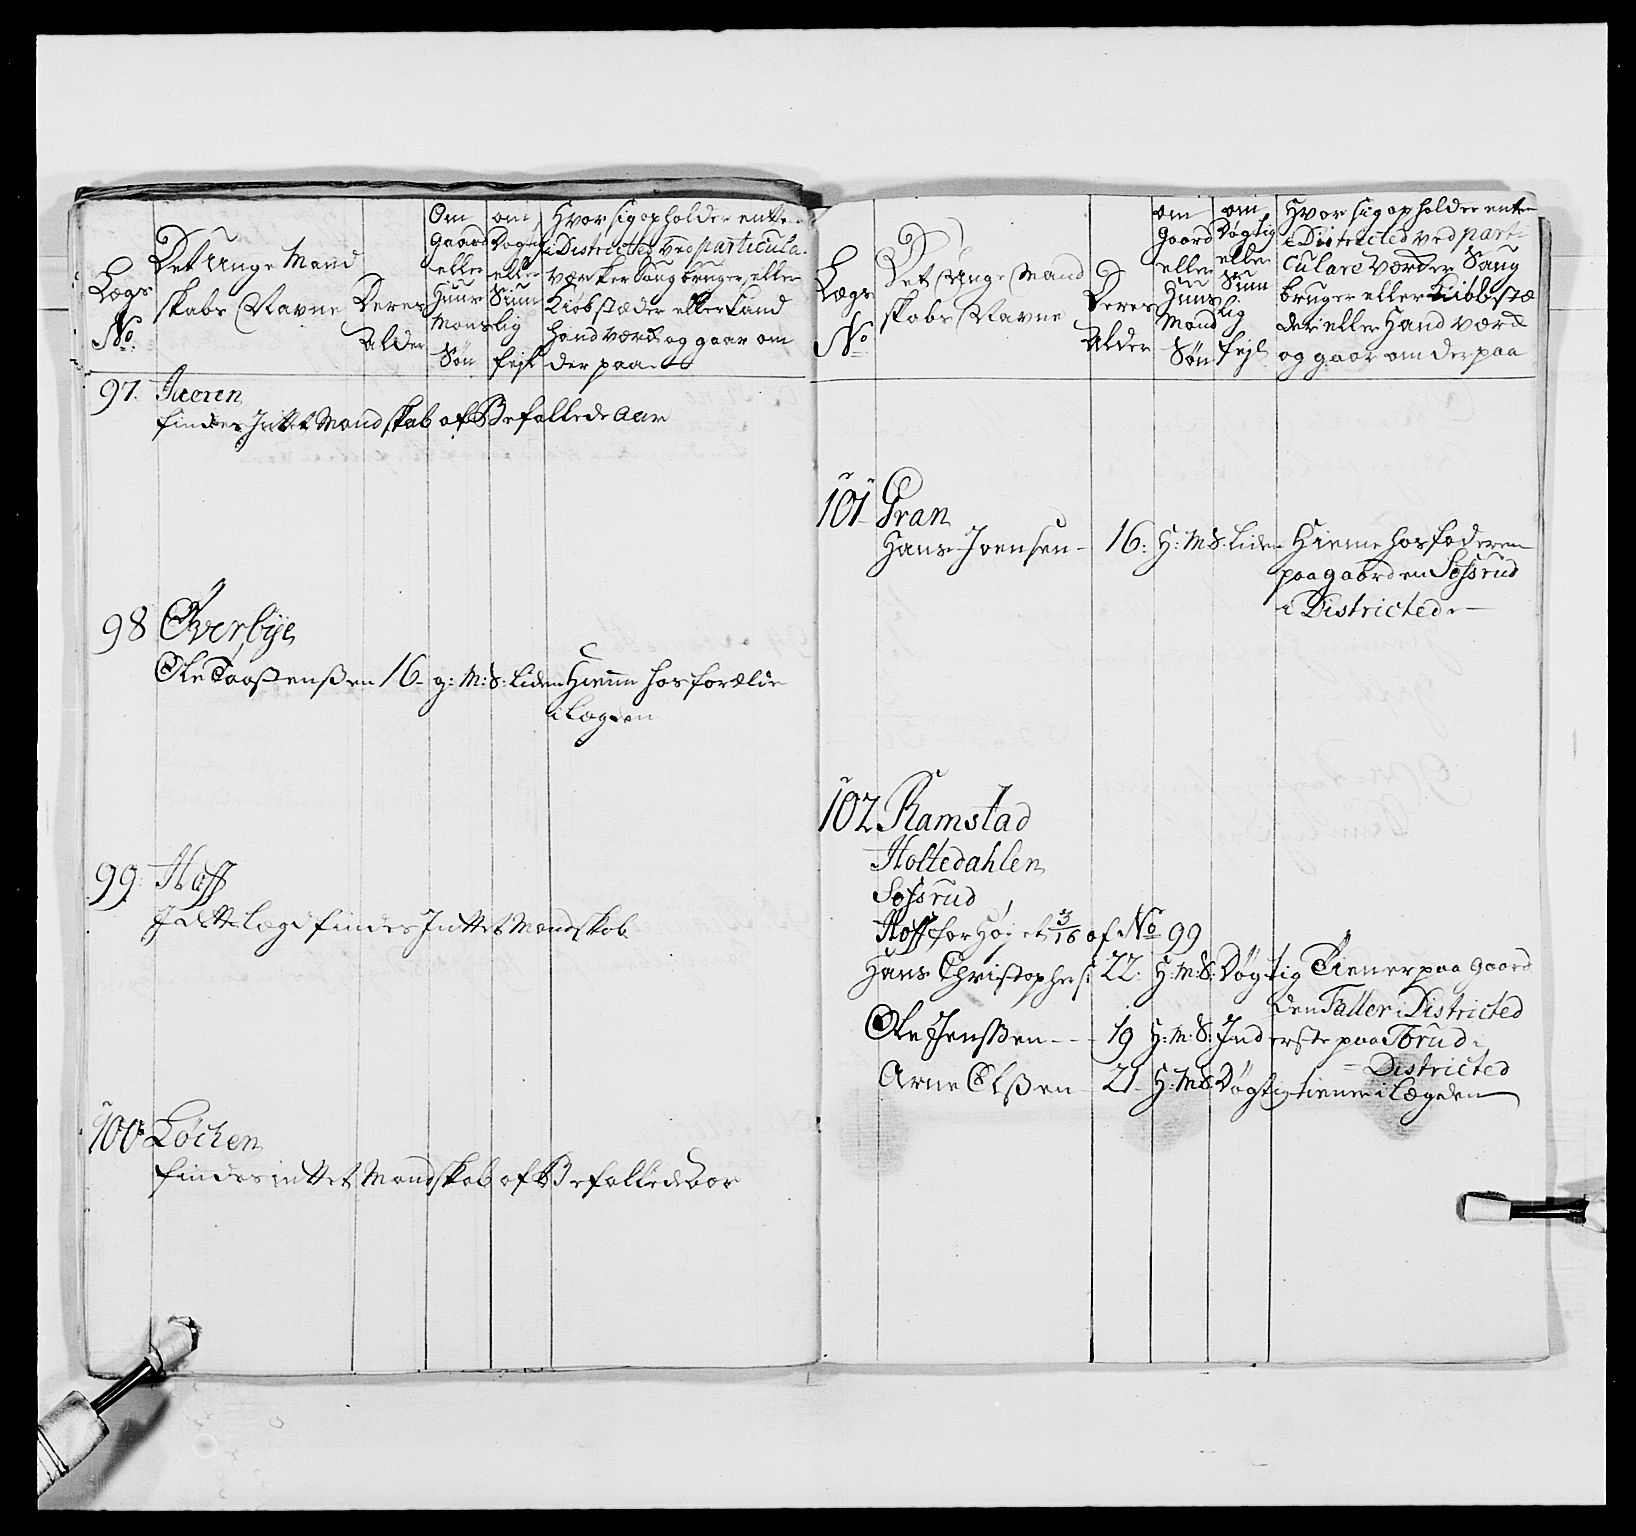 Lægs
No.
Det Unge Mand
skabs Navne
Deres
Alder
Om
gaard
eller
Huus
Mans
Søn
om
Døgtig
eller
Siun
lig
fejl
Hvor sig opholder enten
i Districtet ved particula.
Værcker Saugbruger eller
Kiøbstæder eller Land
handværck og gaar om
der paa
97. Jaeren
findes Intet Mandskab af Befallede aar
98 Øverbÿe
Ole Taaßtenßen 16 - g: M: S: liden Hieme hos forældre
i Lægden
99. Hoff
I dette læg findes Inttet Mandskab
100. Løchen
findes inttet Mandskab af Befallede Aar
Lægs
No
Det Unge Mand
skabs Navne
Deres
Alder
om
Gaard
eller
Huus
Mand
Søn
om
Døgtig
eller
Siun
lig
fejl
Hvor sig opholder enten
i Districted ved parti
culare Værcker Saug
bruger eller Kiøbstæ
der eller Handværck
og gaar om der paa
101 Gran
Hans Joensen - 16: H: M S: liden Hieme hos faderen
paa gaarden Sossrud
i Districted
102 Ramstad
Holtedahlen
Sossrud
Hoff for Høÿet 3/16 af No 99
Hans Christophers: 22. H: M: S: Døgtig Tiener paa Gaard
den Faller i Districted
Ole Jenßen - - - 19 H: M: S: Inderste paa Torud i
Districted
Arne Olßen - 21 - H: M S Døgtig tiener i Lægden